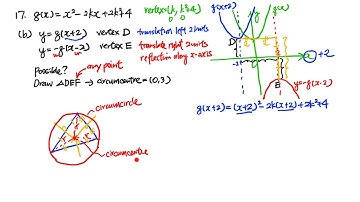 17. g(x)=x²-2kx+2k²+4 vertex=(k, k²+4)
(b) y=g(x+2) vertex D translation left 2 units
y=-g(x-2) vertex E translate right 2 units
reflection along x-axis
Possible? any point
Draw △DEF → circumcentre=(0,3)
circumcircle
circumcentre
g(x+2) y g(x)
D
+2
E y=-g(x-2)
g(x+2)=(x+2)²-2k(x+2)+2k²+4